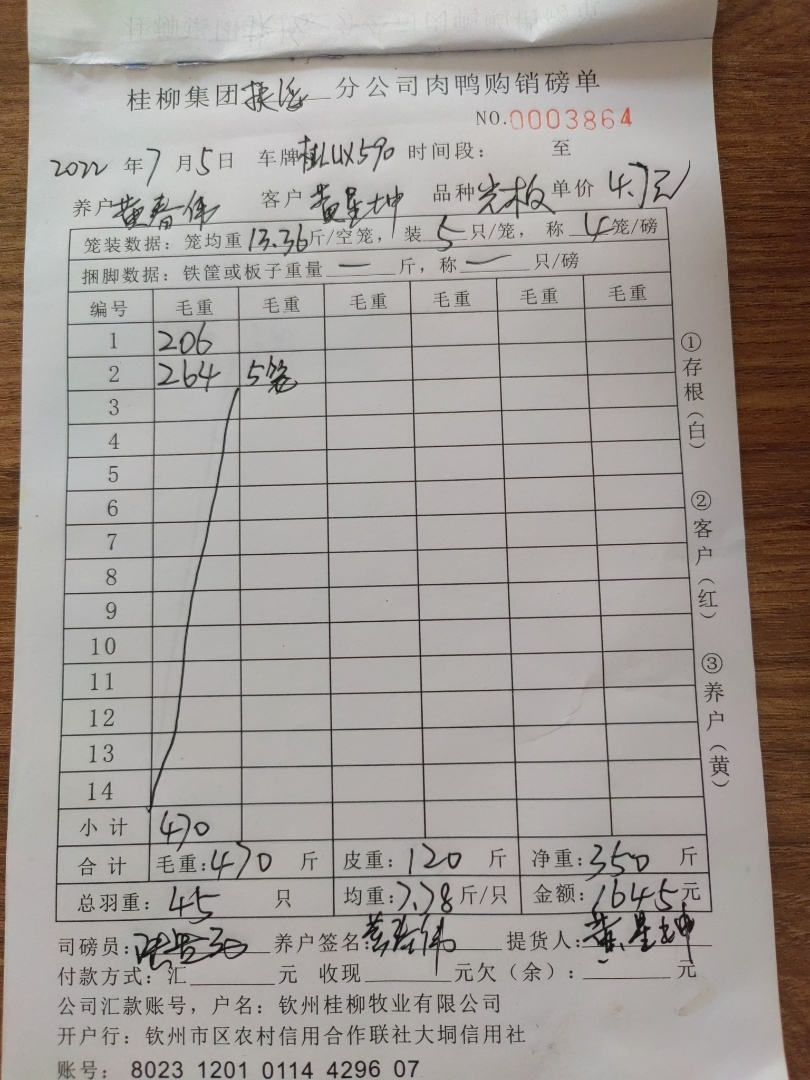 桂柳集团 分公司肉鸭购销磅单
NO.0003864
2022年7月5日 车牌桂LUX590 时间段： 至
养户黄春伟 客户黄星坤 品种光板 单价4.7元
笼装数据：笼均重13.36斤/空笼，装5只/笼，称4笼/磅
捆脚数据：铁筐或板子重量一斤，称一只/磅
编号 毛重 毛重 毛重 毛重 毛重 毛重
1 206
2 264 5笼
3
4
5
6
7
8
9
10
11
12
13
14
小计 470
合计 毛重：470斤 皮重：120斤 净重：350斤
总羽重：45只 均重：7.78斤/只 金额：1645元
司磅员： 养户签名：黄春伟 提货人：黄星坤
付款方式：汇 元 收现 元欠（余）： 元
公司汇款账号，户名：钦州桂柳牧业有限公司
开户行：钦州市区农村信用合作联社大垌信用社
账号： 8023 1201 0114 4296 07
①存根（白）
②客户（红）
③养户（黄）